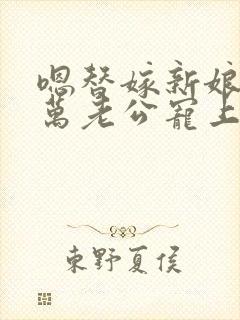 嗯替嫁新娘
萬老公寵上
東野夏侯